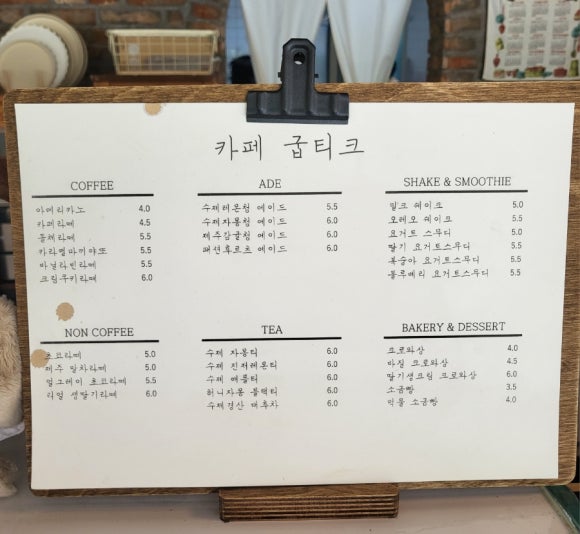 카페 굽티크
COFFEE
아메리카노 4.0
카페라떼 4.5
돌체라떼 5.5
카라멜마끼야또 5.5
바닐라빈라떼 5.5
크림쿠키라떼 6.0
ADE
수제레몬청 에이드 5.5
수제자몽청 에이드 6.0
제주감귤청 에이드 6.0
패션후르츠 에이드 6.0
SHAKE & SMOOTHIE
밀크 쉐이크 5.0
오레오 쉐이크 5.5
요거트 스무디 5.0
딸기 요거트스무디 5.5
복숭아 요거트스무디 5.5
블루베리 요거트스무디 5.5
NON COFFEE
초코라떼 5.0
제주 말차라떼 5.0
얼그레이 초코라떼 5.5
리얼 생딸기라떼 6.0
TEA
수제 자몽티 6.0
수제 진저레몬티 6.0
수제 애플티 6.0
허니자몽 블랙티 6.0
수제경산 대추차 6.0
BAKERY & DESSERT
크로와상 4.0
바질 크로와상 4.5
딸기생크림 크로와상 6.0
소금빵 3.5
먹물 소금빵 4.0